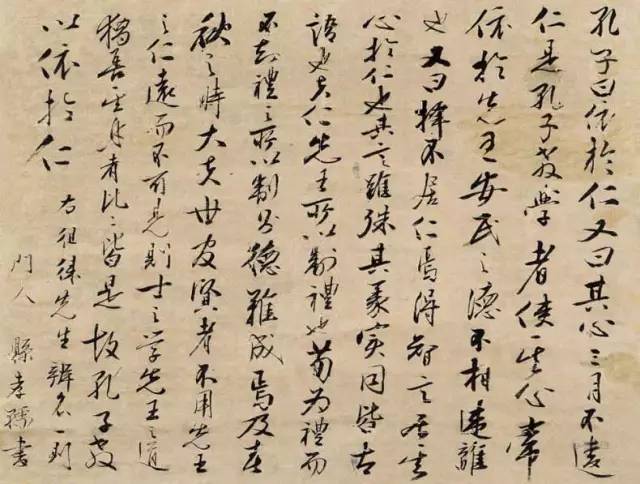 孔子曰依於仁又曰其心三月不違
仁是孔子教學者使其心常
依於先王安民之德不相違離
也又曰擇不居仁焉得智言居其
心於仁也其言雖殊其義實同皆古
語也夫仁先王所以制禮也苟為禮而
不知禮之所以制則德難成焉及春
秋之時大夫世官賢者不用先王
之仁遠而不可見則士之學先王之道
獨善其身者比〻皆是故孔子教
以依於仁
右徂徠先生辨名一則
門人 縣孝孺書